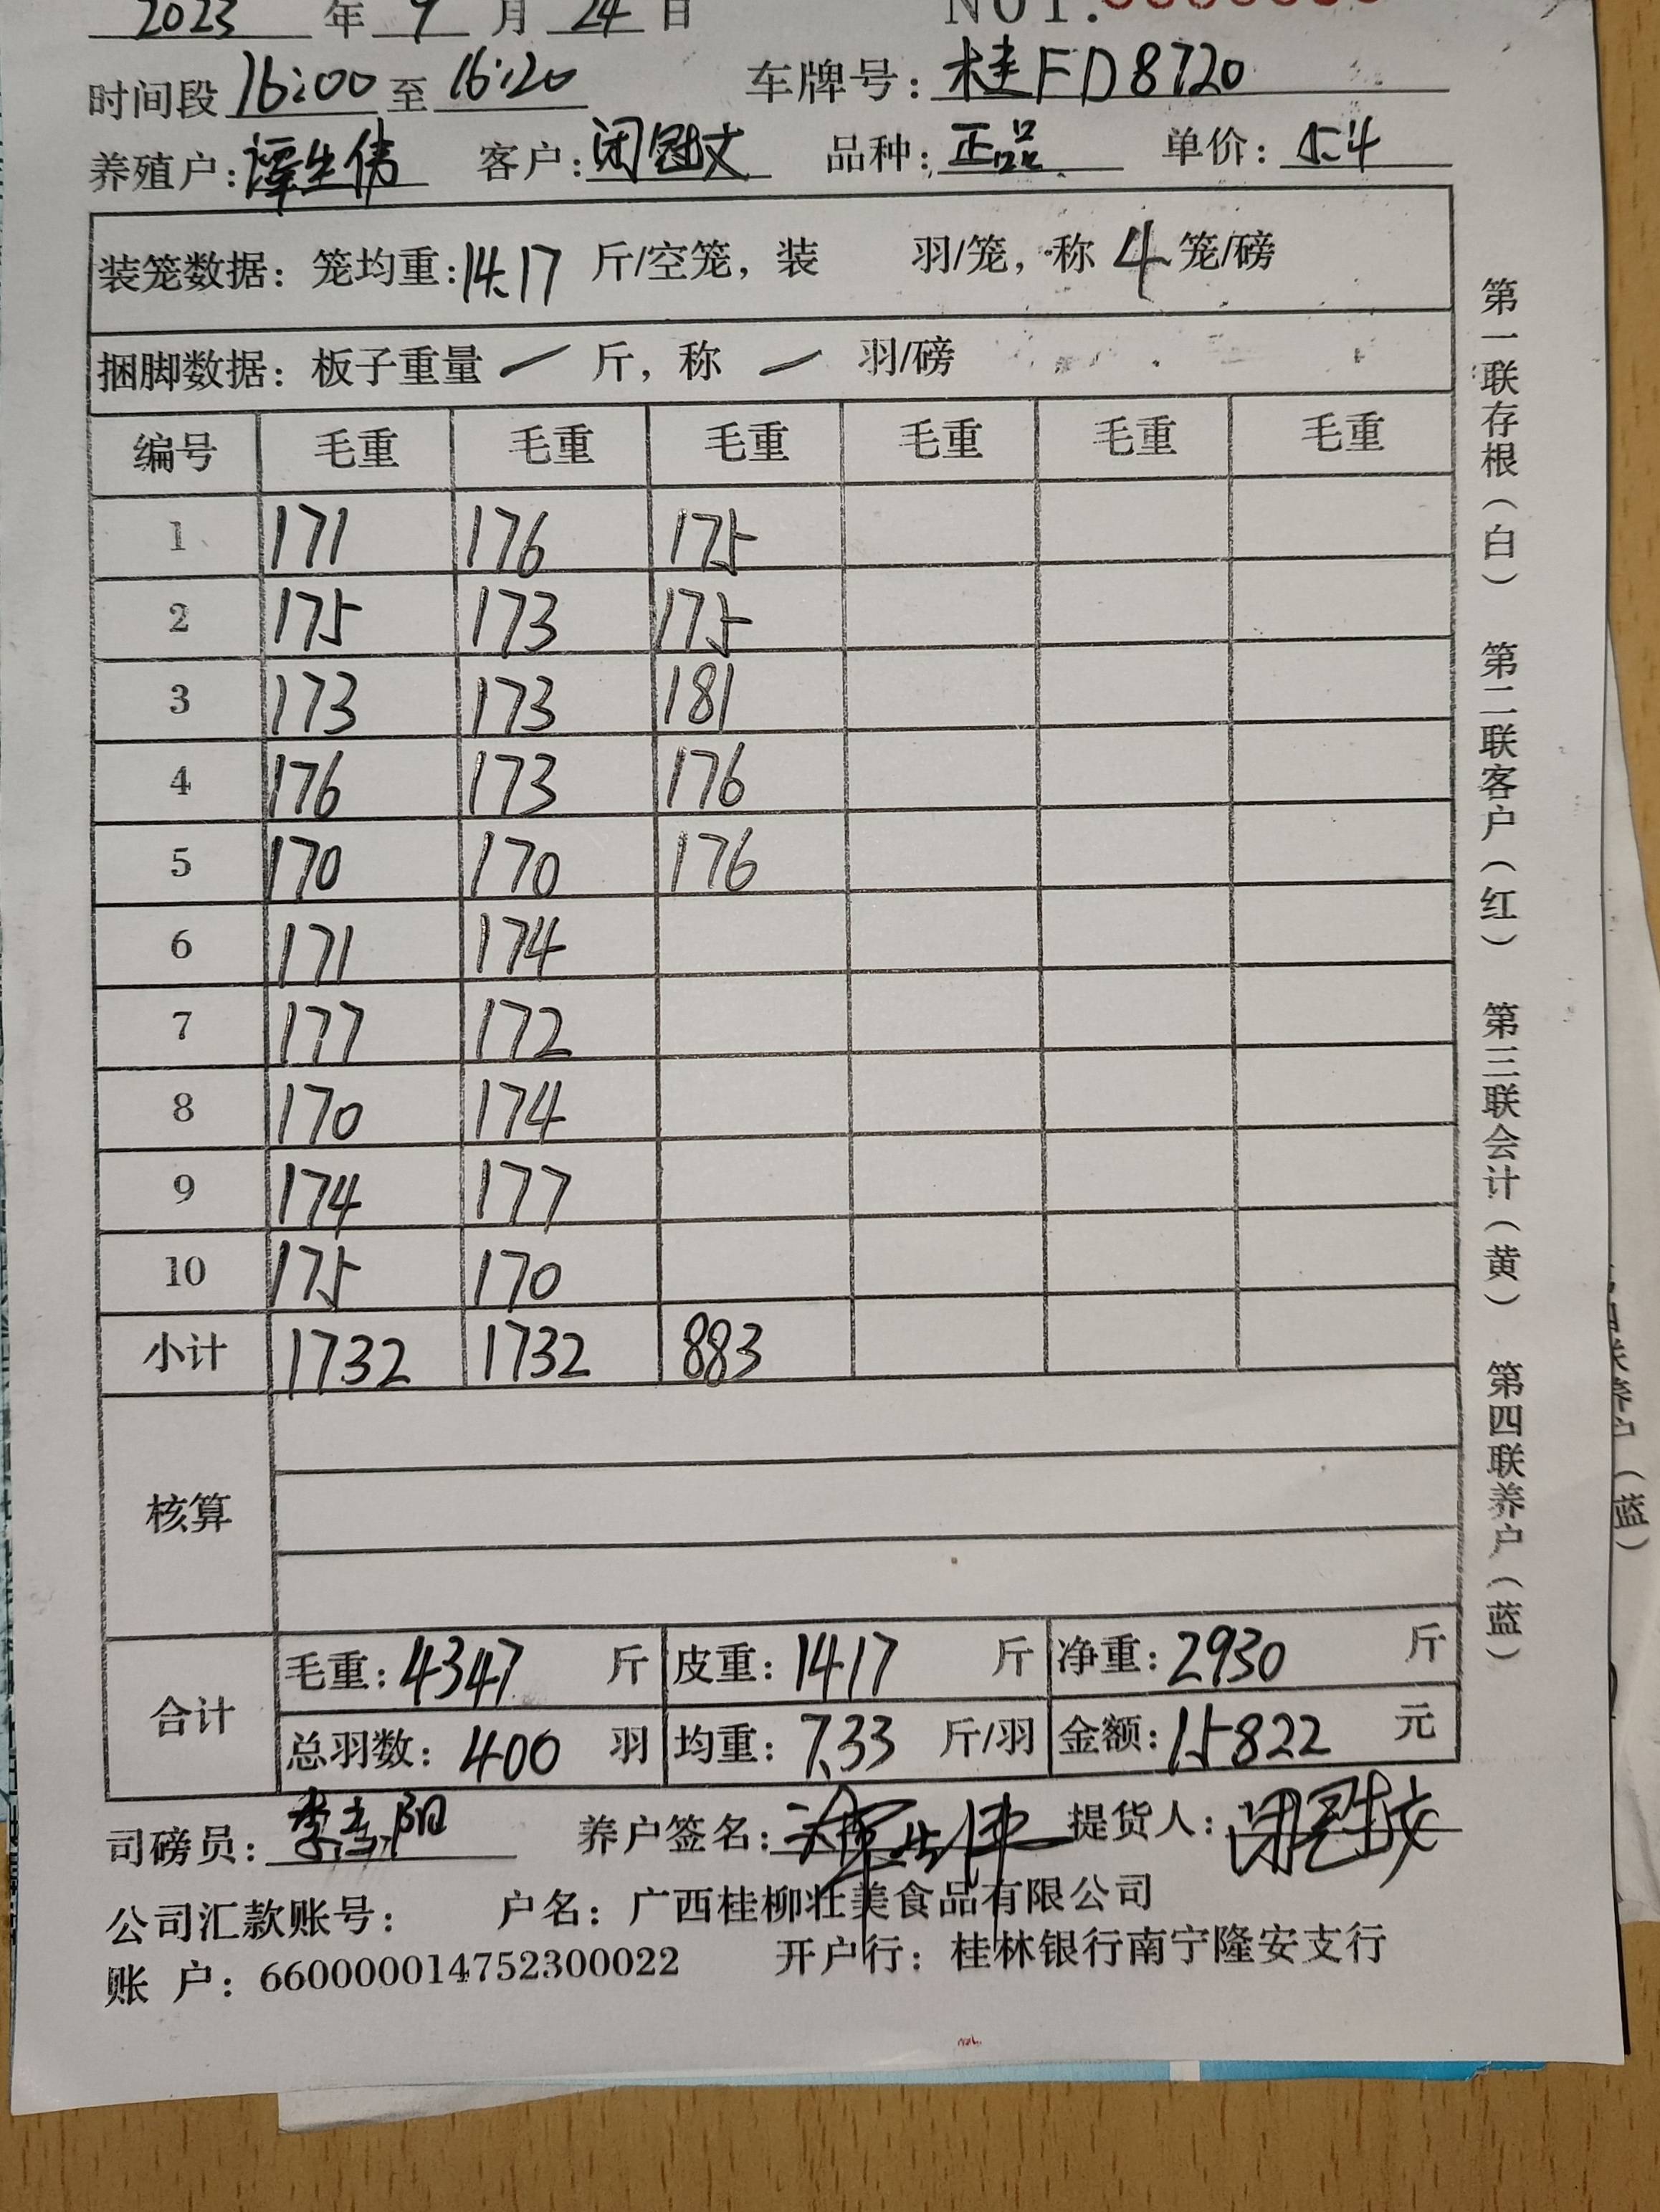 2023 年 9 月 24 日 NO1:
时间段 16:00 至 16:20 车牌号: 桂FD8720
养殖户: 谭生伟 客户: 闭冠文 品种: 正品 单价: 5.4
装笼数据: 笼均重: 14.17 斤/空笼, 装 羽/笼, 称 4 笼/磅
捆脚数据: 板子重量 — 斤, 称 — 羽/磅
编号 毛重 毛重 毛重 毛重 毛重 毛重
1 171 176 175
2 175 173 175
3 173 173 181
4 176 173 176
5 170 170 176
6 171 174
7 177 172
8 170 174
9 174 177
10 175 170
小计 1732 1732 883
核算
合计
毛重: 4347 斤 皮重: 1417 斤 净重: 2930 斤
总羽数: 400 羽 均重: 7.33 斤/羽 金额: 15822 元
司磅员: 养户签名: 谭生伟 提货人: 闭冠文
公司汇款账号: 户名: 广西桂柳壮美食品有限公司
账 户: 660000014752300022 开户行: 桂林银行南宁隆安支行
第一联存根(白) 第二联客户(红) 第三联会计(黄) 第四联养户(蓝)